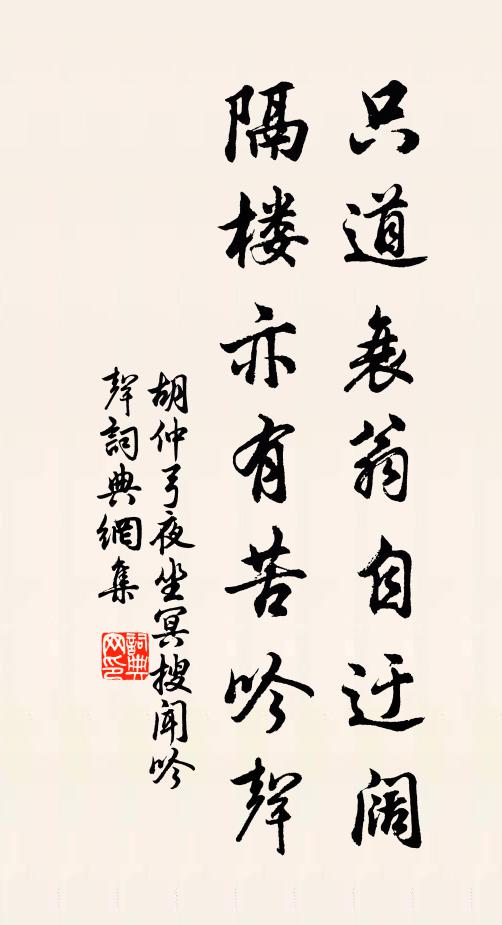 只道衰翁自迂阔
隔楼亦有苦吟聲
胡仲弓夜坐冥搜闻吟
聲詞典網集
詞典网印